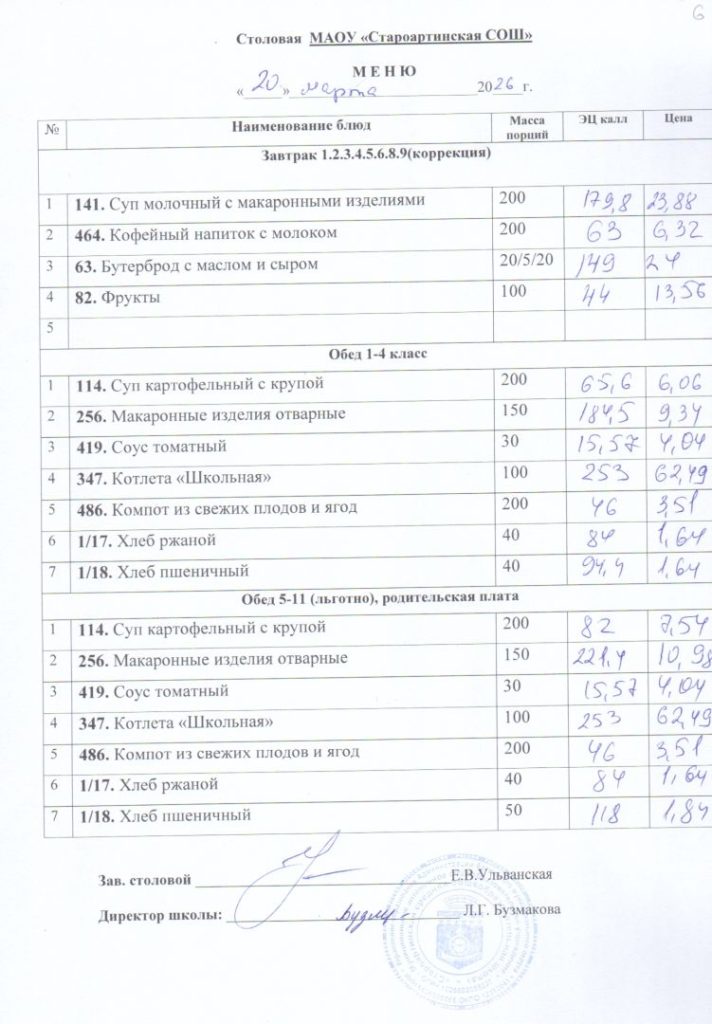 6
Столовая МАОУ «Староартинская СОШ»
М Е Н Ю
«20» марта 2026 г.
№ Наименование блюд Масса порций ЭЦ калл Цена
Завтрак 1.2.3.4.5.6.8.9(коррекция)
1 141. Суп молочный с макаронными изделиями 200 179,8 23,88
2 464. Кофейный напиток с молоком 200 63 6,32
3 63. Бутерброд с маслом и сыром 20/5/20 149 24
4 82. Фрукты 100 44 13,56
5
Обед 1-4 класс
1 114. Суп картофельный с крупой 200 65,6 6,06
2 256. Макаронные изделия отварные 150 184,5 9,34
3 419. Соус томатный 30 15,57 4,04
4 347. Котлета «Школьная» 100 253 62,49
5 486. Компот из свежих плодов и ягод 200 46 3,51
6 1/17. Хлеб ржаной 40 84 1,64
7 1/18. Хлеб пшеничный 40 94,4 1,64
Обед 5-11 (льготно), родительская плата
1 114. Суп картофельный с крупой 200 82 7,54
2 256. Макаронные изделия отварные 150 221,4 10,98
3 419. Соус томатный 30 15,57 4,04
4 347. Котлета «Школьная» 100 253 62,49
5 486. Компот из свежих плодов и ягод 200 46 3,51
6 1/17. Хлеб ржаной 40 84 1,64
7 1/18. Хлеб пшеничный 50 118 1,84
Зав. столовой Е.В.Ульванская
Директор школы: Л.Г. Бузмакова